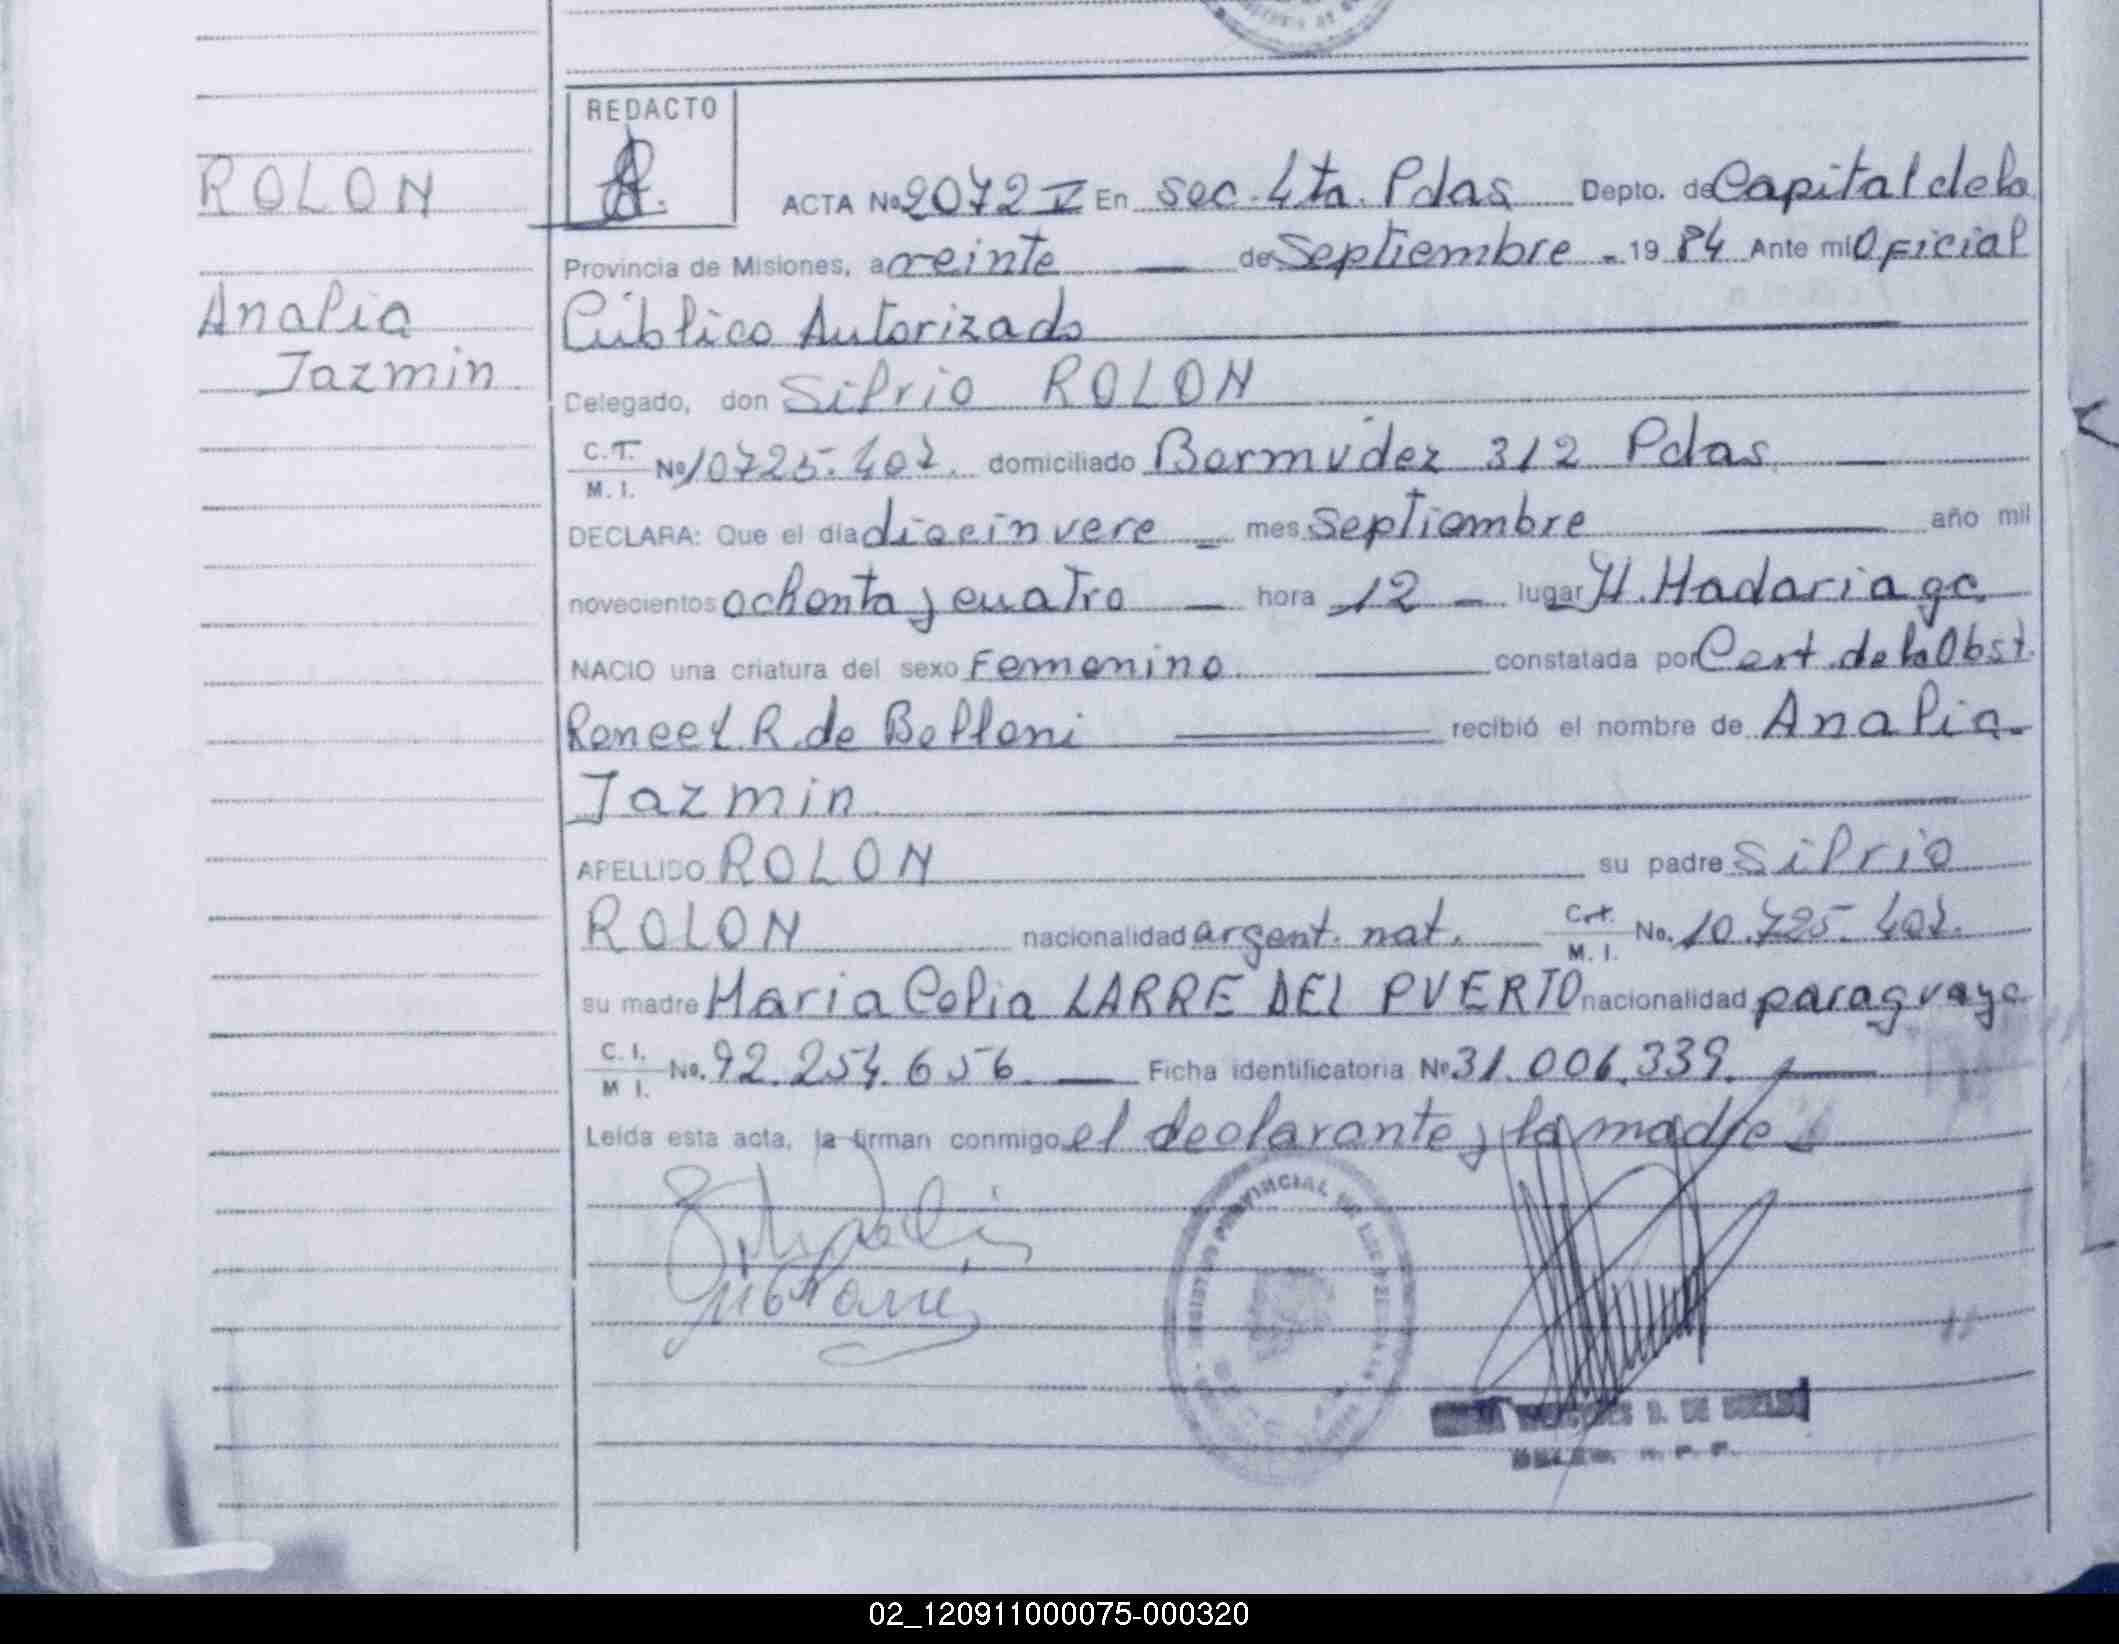 REDACTO
ROLON
ACTA Nº 2072 V En sec. 4ta. Pdas Depto. de Capital de la
Provincia de Misiones, a veinte de Septiembre - 1984 Ante mi Oficial
Analia
Público Autorizado
Jazmin
Delegado, don Silrio ROLON
C.T. M. I. Nº 10725.407. domiciliado Bermudez 312 Pdas
DECLARA: Que el día diecinueve mes Septiembre año mil
novecientos ochenta y cuatro - hora 12 - lugar H. Madariaga
NACIO una criatura del sexo Femenino constatada por Cert. de la Obst.
Renee L. R. de Belloni recibió el nombre de Analia
Jazmin
APELLIDO ROLON su padre Silrio
ROLON nacionalidad argent. nat. M. I. No. 10.725.407.
su madre Maria Celia LARRE DEL PUERTO nacionalidad paraguaya
C. I. M I. No. 92.254.656 Ficha identificatoria Nº 31.006.339.
Leída esta acta, la firman conmigo el declarante y la madre
REGISTRO PROVINCIAL DE LAS PERSONAS
02_120911000075-000320